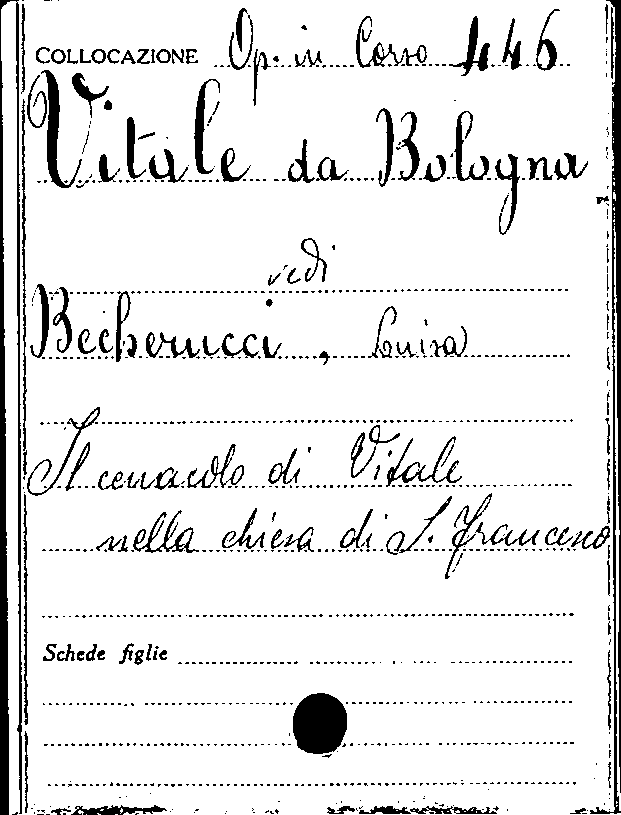 COLLOCAZIONE Op. in Corso 446
Vitale da Bologna
vedi
Becherucci, Luisa
Il cenacolo di Vitale
nella chiesa di S. Francesco
Schede figlie